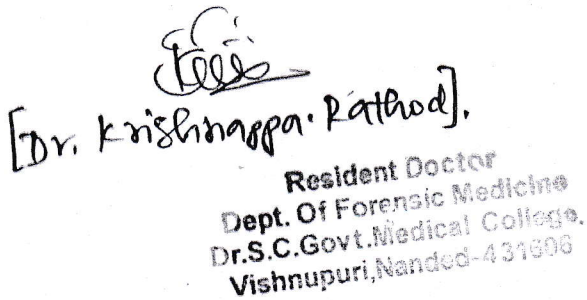 [Dr. Krishnappa. Rathod].
Resident Doctor
Dept. Of Forensic Medicine
Dr.S.C.Govt.Medical College.
Vishnupuri,Nanded-431606